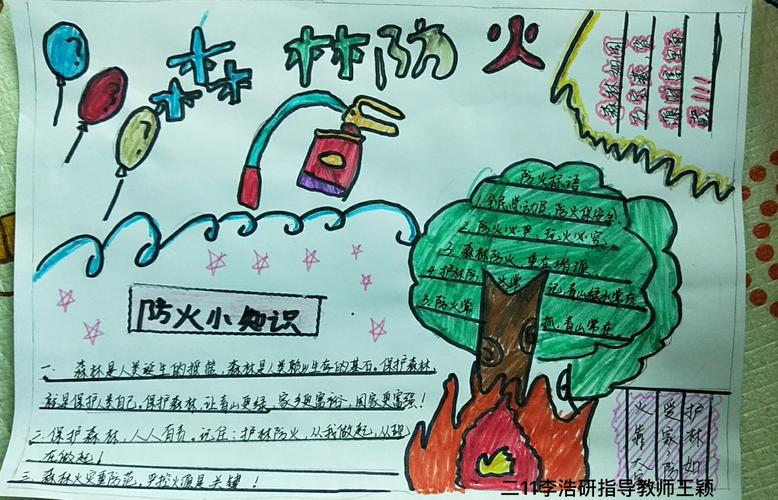 森林防火
森林如同
万宝藏,
防火标语
1.全民总动员,防火保安全.
2.防火必严,玩火必究.
3.森林防火,重在措源.
4.护林防 记,青山绿水常在
5.防火常 抓,青山常在
防火小知识
一.森林是人类诞生的摇篮,森林是人类赖以生存的基石。保护森林
就是保护人类自己。保护森林,让青山更绿,家乡更富裕,国家更富强!
二.保护森林,人人有责。记住:护林防火,从我做起,从现
在做起!
三.森林火灾重防范,
护林如
爱家,防
火靠大
二11李浩研指导教师王颖